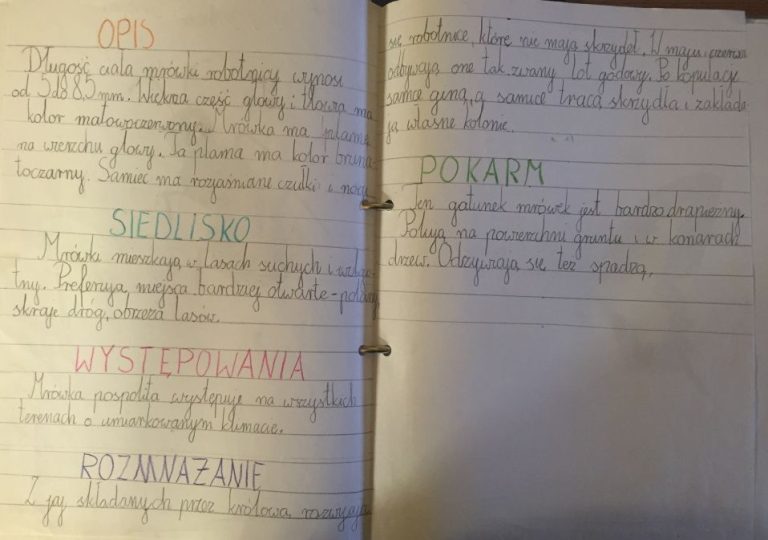 OPIS
Długość ciała mrówki robotnicy wynosi
od 5 do 8,5 mm. Większa część głowy i tłowia ma
kolor małowoczerwony. Mrówka ma plamę
na wierzchu głowy. Ta plama ma kolor bruna
toczarny. Samiec ma rozjaśniane czułki i nogi
SIEDLISKO
Mrówki mieszkają w lasach suchych i
tny. Preferują miejsca bardziej otwarte - polany,
skraje dróg, obrzeża lasów.
WYSTĘPOWANIA
Mrówka pospolita występuje na wszystkich
terenach o umiarkowanym klimacie.
ROZMNAŻANIE
Z jaj składanych przez królową rozwijają
się robotnice, które nie mają skrzydeł. W maju i czerwcu
odbywają one tak zwany lot godowy. Po kopulacji
samce giną, a samice tracą skrzydła i zakłada
ją własne kolonie.
POKARM
Ten gatunek mrówek jest bardzo drapieżny.
Polują na powierzchni gruntu i w konarach
drzew. Odżywiają się też spadzą.